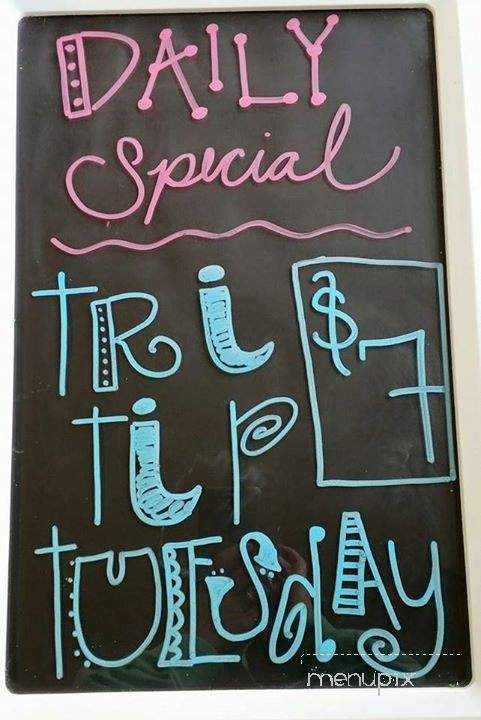 DAILY
Special
TRi $7
tip
TUESdAy
menupix